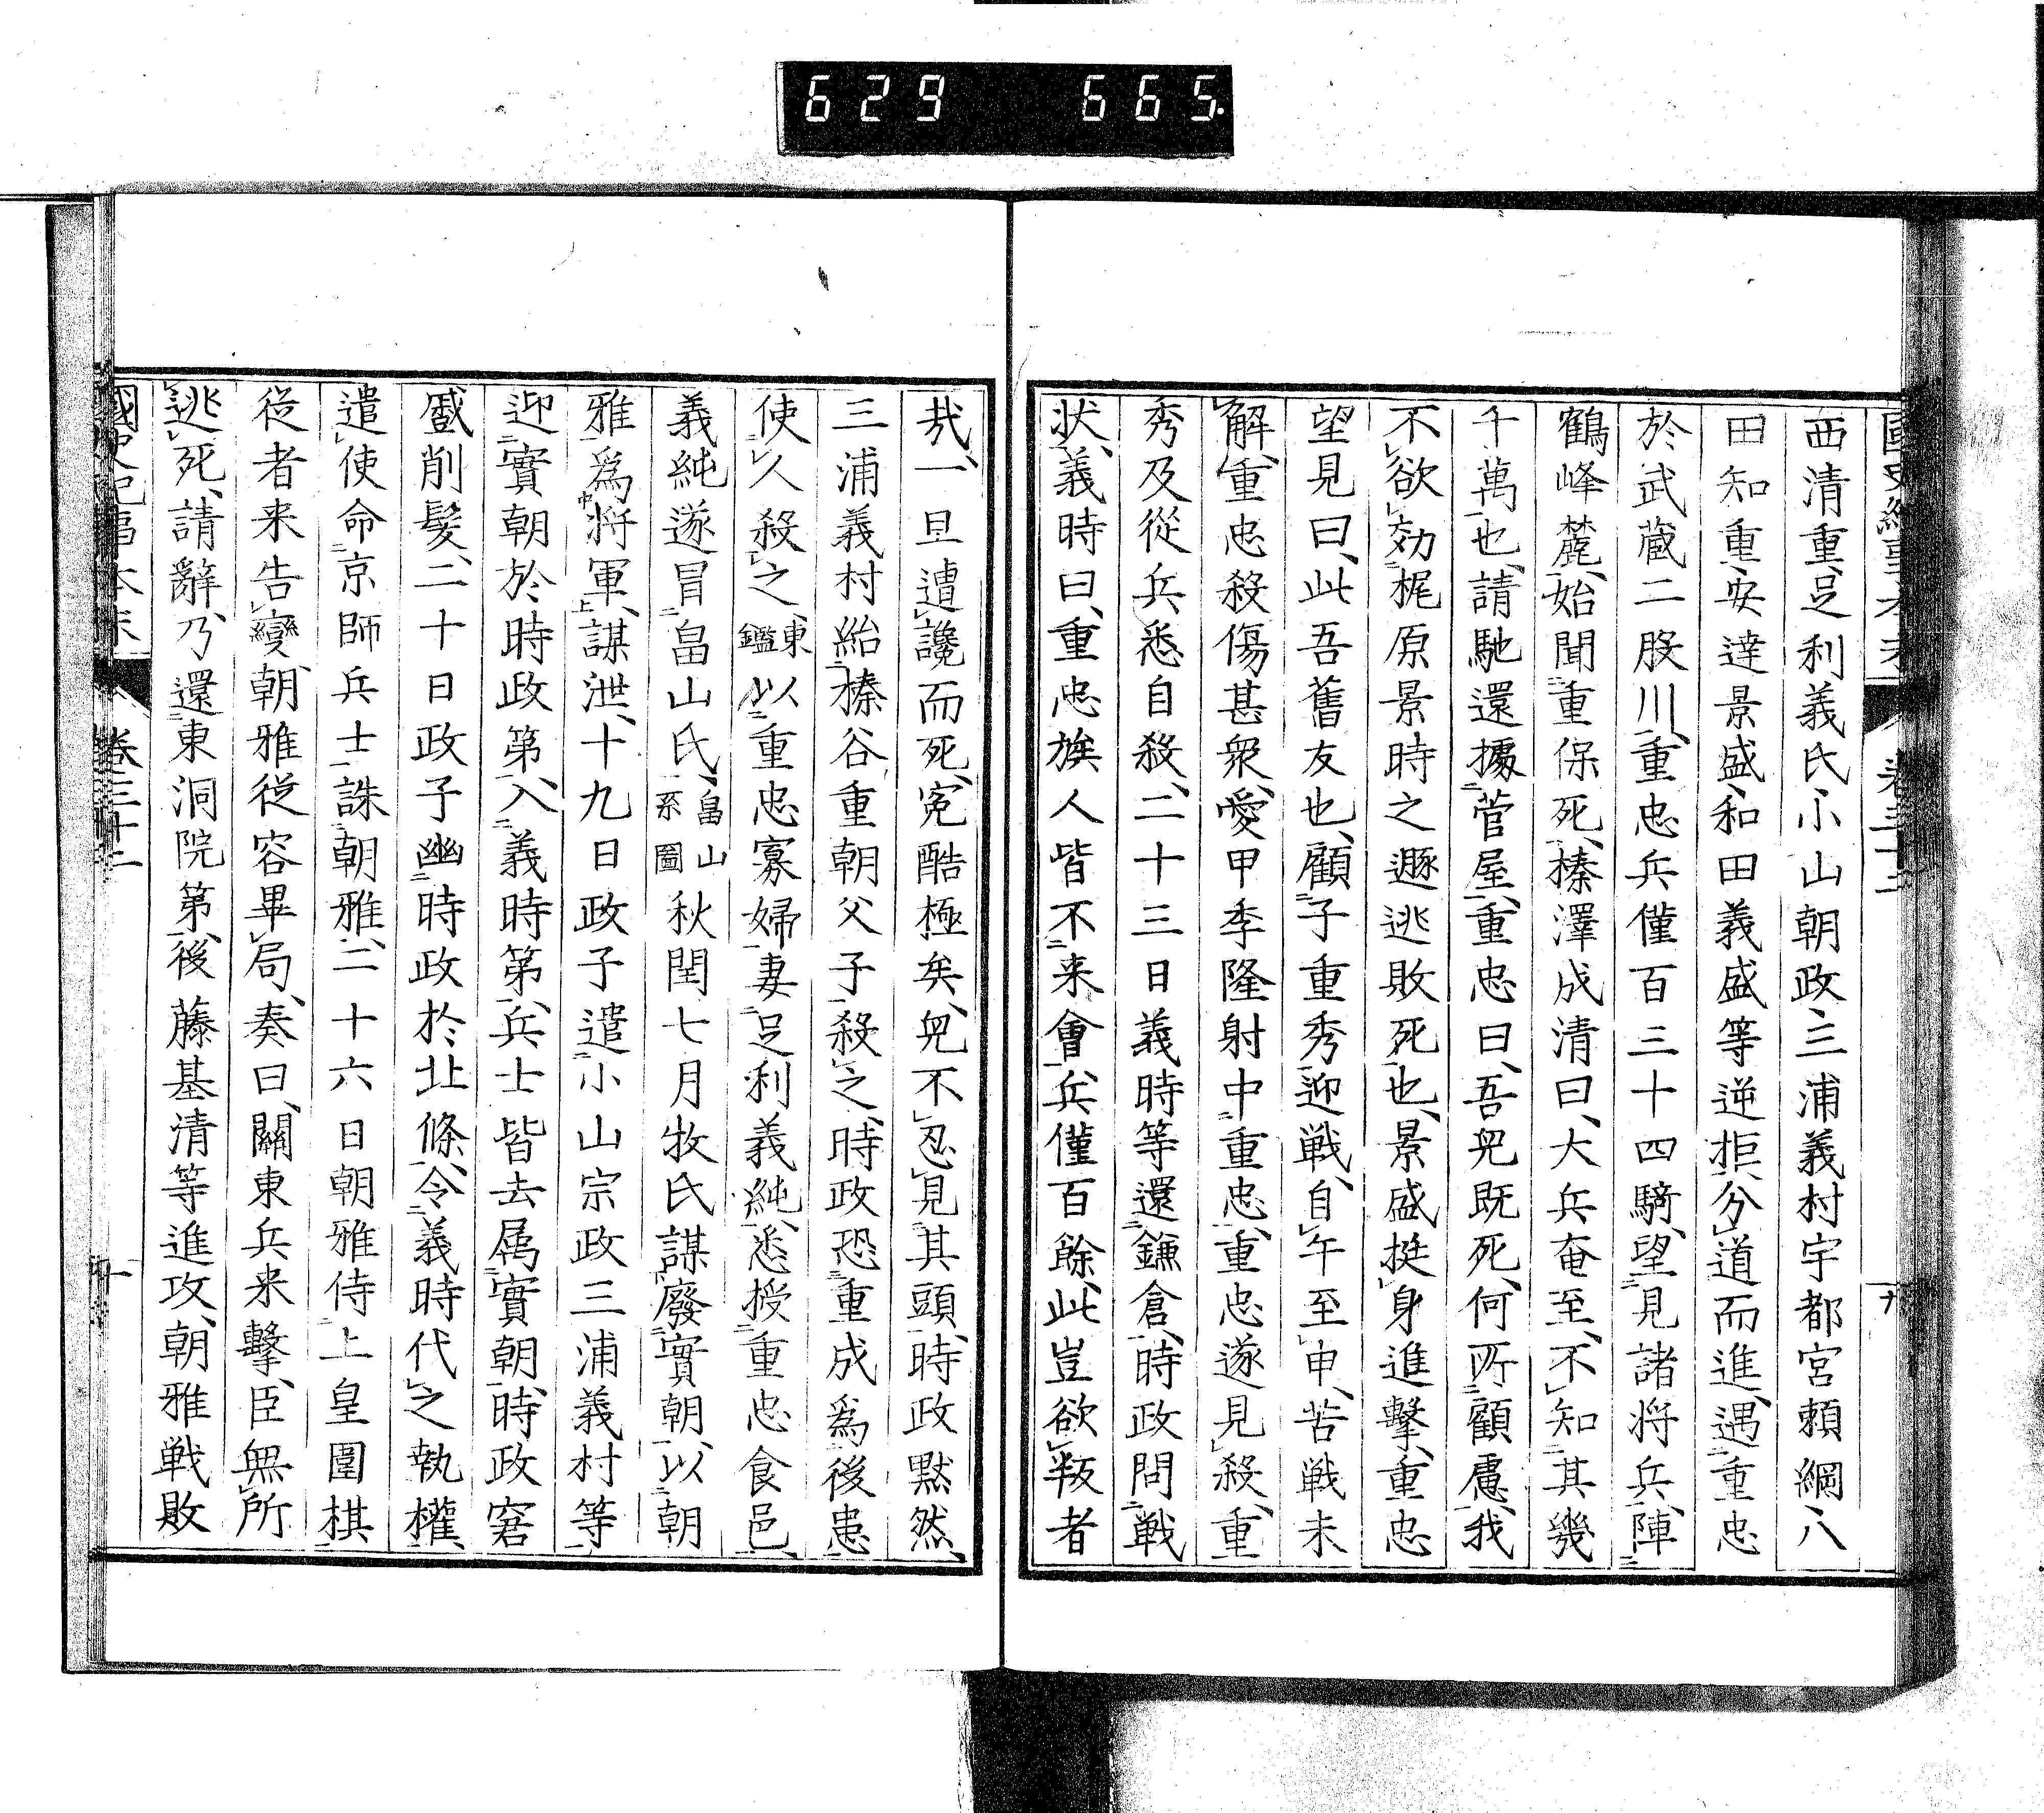 629 665.
國史紀事本末 卷三十二
西清重、足利義氏、小山朝政、三浦義村、宇都宮頼綱、八
田知重、安達景盛、和田義盛等逆拒、分道而進、遇重忠
於武蔵二股川、重忠兵僅百三十四騎、望見諸将兵、陣
鶴峰麓、始聞重保死、榛澤成清曰、大兵奄至、不知其幾
千萬也、請馳還據菅屋、重忠曰、吾兒既死、何所顧慮、我
不欲効梶原景時之遯逃敗死也、景盛挺身進擊、重忠
望見曰、此吾舊友也、顧子重秀迎戦、自午至申、苦戦未
解、重忠殺傷甚衆、愛甲季隆射中重忠、重忠遂見殺、重
秀及從兵悉自殺、二十三日義時等還鎌倉、時政問戦
状、義時曰、重忠族人皆不来會、兵僅百餘、此豈欲叛者
哉、一旦遭讒而死、寃酷極矣、兒不忍見其頭、時政黙然、
三浦義村紿榛谷重朝父子殺之、時政恐重成為後患、
使人殺之、東鑑以重忠寡婦妻足利義純、悉授重忠食邑、
義純遂冒畠山氏、畠山系圖秋閏七月牧氏謀廢實朝、以朝
雅為将軍、謀泄、十九日政子遣小山宗政三浦義村等
迎實朝於時政第、入義時第、兵士皆去属實朝、時政窘
蹙削髮、二十日政子幽時政於北條、令義時代之執權、
遣使命京師兵士誅朝雅、二十六日朝雅侍上皇圍棋
從者来告變、朝雅從容畢局、奏曰、關東兵来擊、臣無所
逃死、請辭、乃還東洞院第、後藤基清等進攻、朝雅戦敗
國史紀事本末 卷三十二